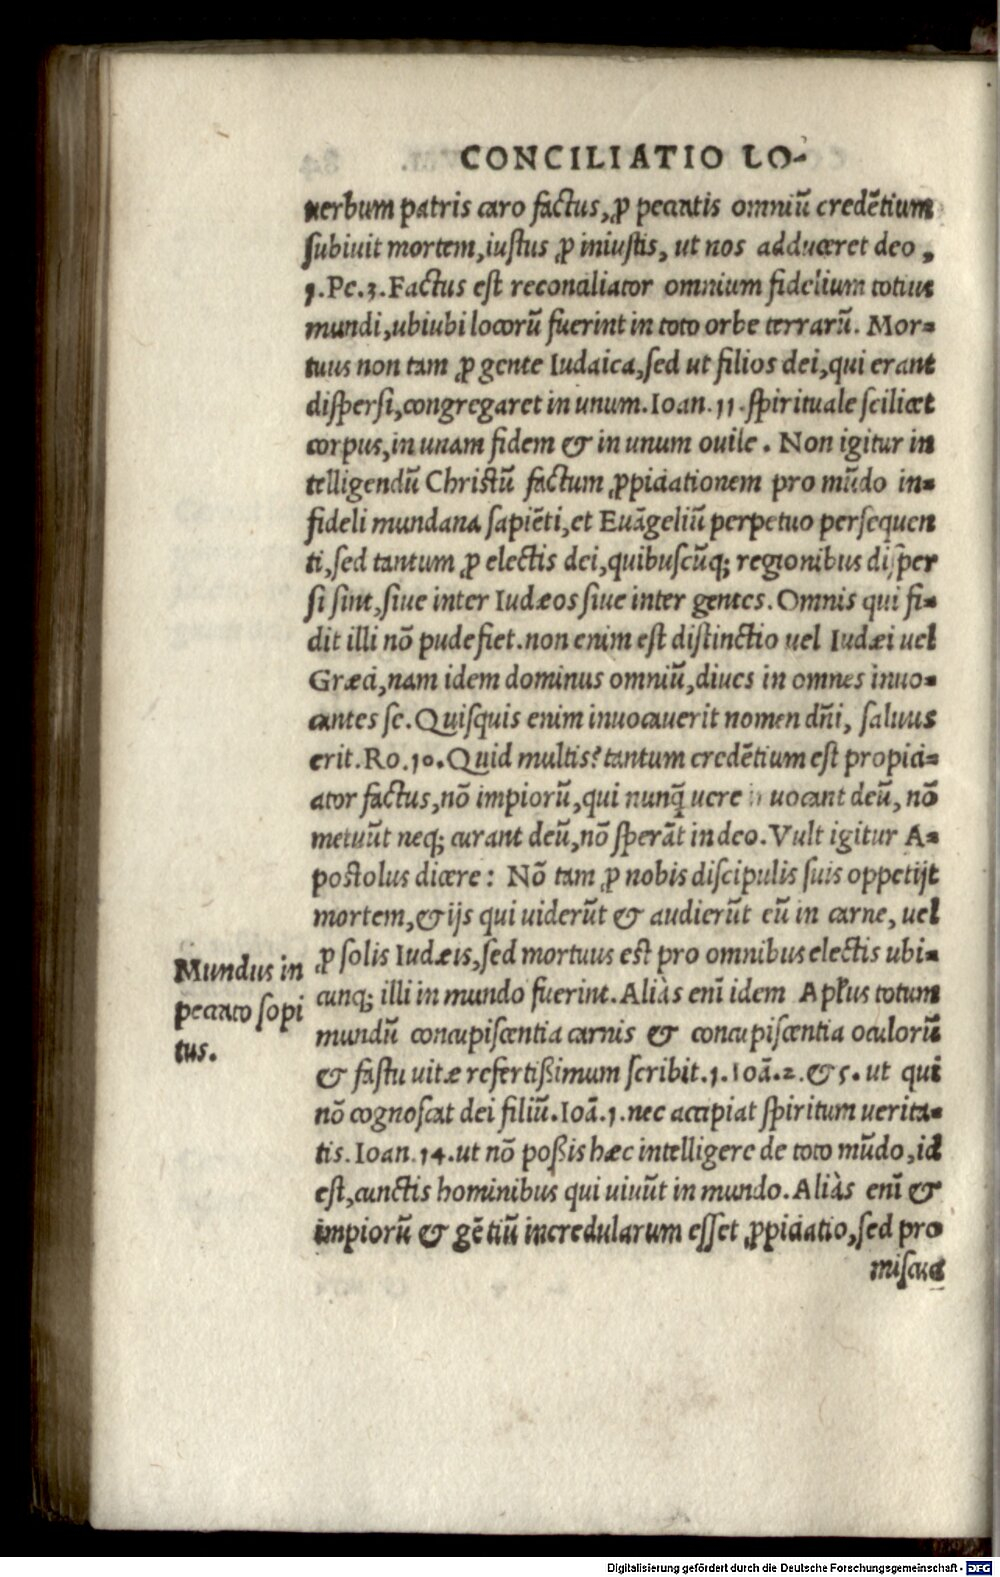 CONCILIATIO LO-
uerbum patris caro factus, ꝓ peccatis omniũ credẽtium
ſubiuit mortem, iuſtus ꝓ iniuſtis, ut nos adduceret deo,
1. Pe. 3. Factus eſt reconciliator omnium fidelium totius
mundi, ubiubi locorũ fuerint in toto orbe terrarũ. Mor=
tuus non tam ꝓ gente Iudaica, ſed ut filios dei, qui erant
diſperſi, congregaret in unum. Ioan. 11. ſpirituale ſcilicet
corpus, in unam fidem & in unum ouile. Non igitur in
telligendũ Chriſtũ factum ꝓpiciationem pro mũdo in=
fideli mundana ſapiẽti, et Euãgeliũ perpetuo perſequen
ti, ſed tantum ꝓ electis dei, quibuſcũq; regionibus diſper
ſi ſint, ſiue inter Iudæos ſiue inter gentes. Omnis qui fi=
dit illi nõ pudefiet. non enim eſt diſtinctio uel Iudæi uel
Græci, nam idem dominus omniũ, diues in omnes inuo=
cantes ſe. Quiſquis enim inuocauerit nomen dñi, ſaluus
erit. Ro. 10. Quid multis? tantum credẽtium eſt propici=
ator factus, nõ impiorũ, qui nunq̃ uere inuocant deũ, nõ
metuũt neq; curant deũ, nõ ſperãt in deo. Vult igitur A=
poſtolus dicere: Nõ tam ꝓ nobis diſcipulis ſuis oppetijt
mortem, & ijs qui uiderũt & audierũt eũ in carne, uel
ꝓ ſolis Iudæis, ſed mortuus eſt pro omnibus electis ubi=
cunq; illi in mundo fuerint. Aliàs enĩ idem Apłus totum
mundũ concupiſcentia carnis & concupiſcentia oculorũ
& faſtu uitæ refertißimum ſcribit. 1. Ioã. 2. & 5. ut qui
nõ cognoſcat dei filiũ. Ioã. 1. nec accipiat ſpiritum uerita=
tis. Ioan. 14. ut nõ poßis hæc intelligere de toto mũdo, id
eſt, cunctis hominibus qui uiuũt in mundo. Aliàs enĩ &
impiorũ & gẽtiũ incredularum eſſet ꝓpiciatio, ſed pro
miſcue
Mundus in
peccato ſopi
tus.
Digitalisierung gefördert durch die Deutsche Forschungsgemeinschaft - DFG